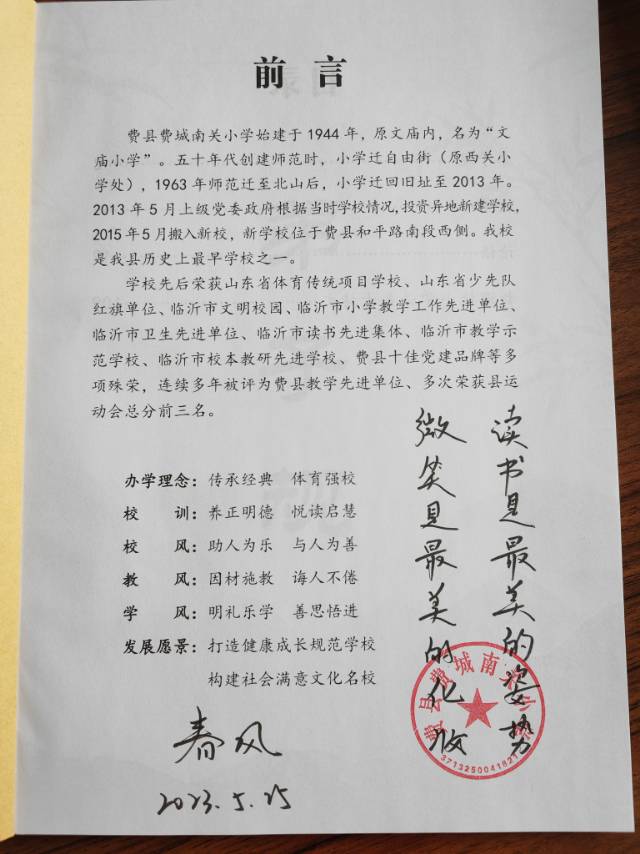 前言
费县费城南关小学始建于1944年，原文庙内，名为“文
庙小学”。五十年代创建师范时，小学迁自由街（原西关小
学处），1963年师范迁至北山后，小学迁回旧址至2013年。
2013年5月上级党委政府根据当时学校情况，投资异地新建学校，
2015年5月搬入新校，新学校位于费县和平路南段西侧。我校
是我县历史上最早学校之一。
学校先后荣获山东省体育传统项目学校、山东省少先队
红旗单位、临沂市文明校园、临沂市小学教学工作先进单位、
临沂市卫生先进单位、临沂市读书先进集体、临沂市教学示
范学校、临沂市校本教研先进学校、费县十佳党建品牌等多
项殊荣，连续多年被评为费县教学先进单位、多次荣获县运
动会总分前三名。
办学理念：传承经典 体育强校
校训：养正明德 悦读启慧
校风：助人为乐 与人为善
教风：因材施教 诲人不倦
学风：明礼乐学 善思悟进
发展愿景：打造健康成长规范学校
构建社会满意文化名校
读书是最美的姿势
微笑是最美的化妆
费县费城南关小学
3713250041821
春风
2023.5.25